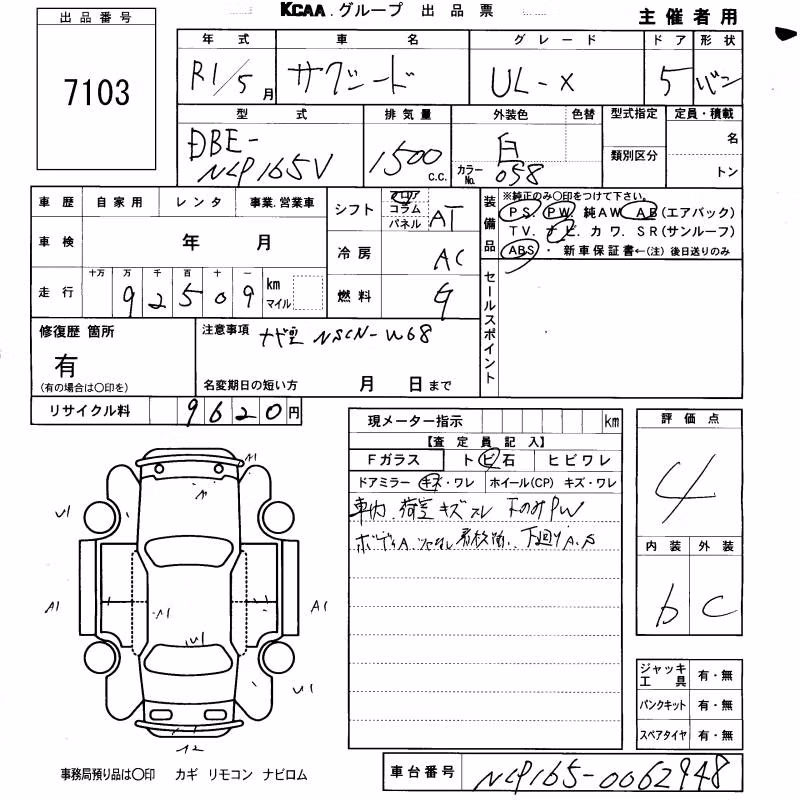 KCAA.グループ 出品票
主催者用
出品番号
7103
年式 車名 グレード ドア 形状
R1/5月 サクシード UL-X 5 バン
型式 排気量 外装色 色替 型式指定 定員・積載
DBE-
NCP165V 1500 c.c. 白 名
カラーNo. 058 類別区分 トン
車歴 自家用 レンタ 事業.営業車
車検 年 月
走行 十万 万 千 百 十 一
92509 km マイル
シフト フロア コラム パネル AT
冷房 AC
燃料 G
装備品 ※純正のみ○印をつけて下さい。
PS. PW. 純AW. AB(エアバック)
TV. ナビ. カワ. SR(サンルーフ)
ABS. 新車保証書←(注)後日送りのみ
セールスポイント
修復歴 箇所
有
(有の場合は○印を)
注意事項 ナビ型 NSCN-W68
名変期日の短い方 月 日まで
リサイクル料 9620円
現メーター指示 km
【査定員記入】
Fガラス トビ石 ヒビワレ
ドアミラー キズ・ワレ ホイール(CP) キズ・ワレ
車内.荷室キズスレ 下のみPW
ボディA. 下回りA.S
評価点
4
内装 外装
b C
A1 A1 A1 A1 U1 U1 U1 A2
ジャッキ工具 有・無
パンクキット 有・無
スペアタイヤ 有・無
事務局預り品は○印 カギ リモコン ナビロム
車台番号 NCP165-0062948